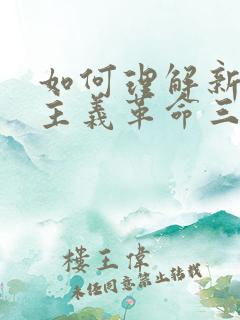 如何理解新
主義革命三
樓王偉
未任同意禁止转载